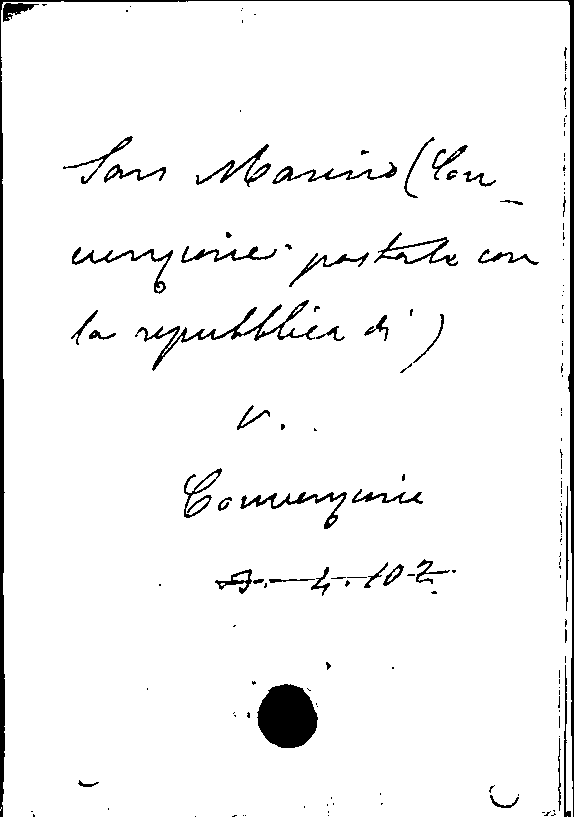 San Marino (Con_
venzione postale con
la repubblica di)
v.
Convenzione
7. - 4. 102.